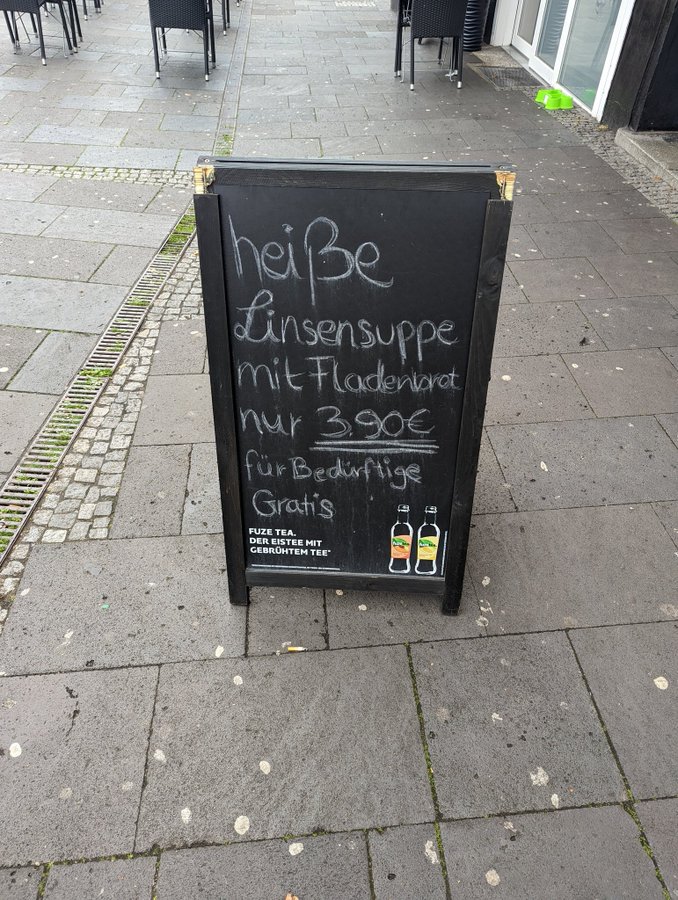 heiße
Linsensuppe
mit Fladenbrot
nur 3,90€
für Bedürftige
Gratis
FUZE TEA.
DER EISTEE MIT
GEBRÜHTEM TEE*